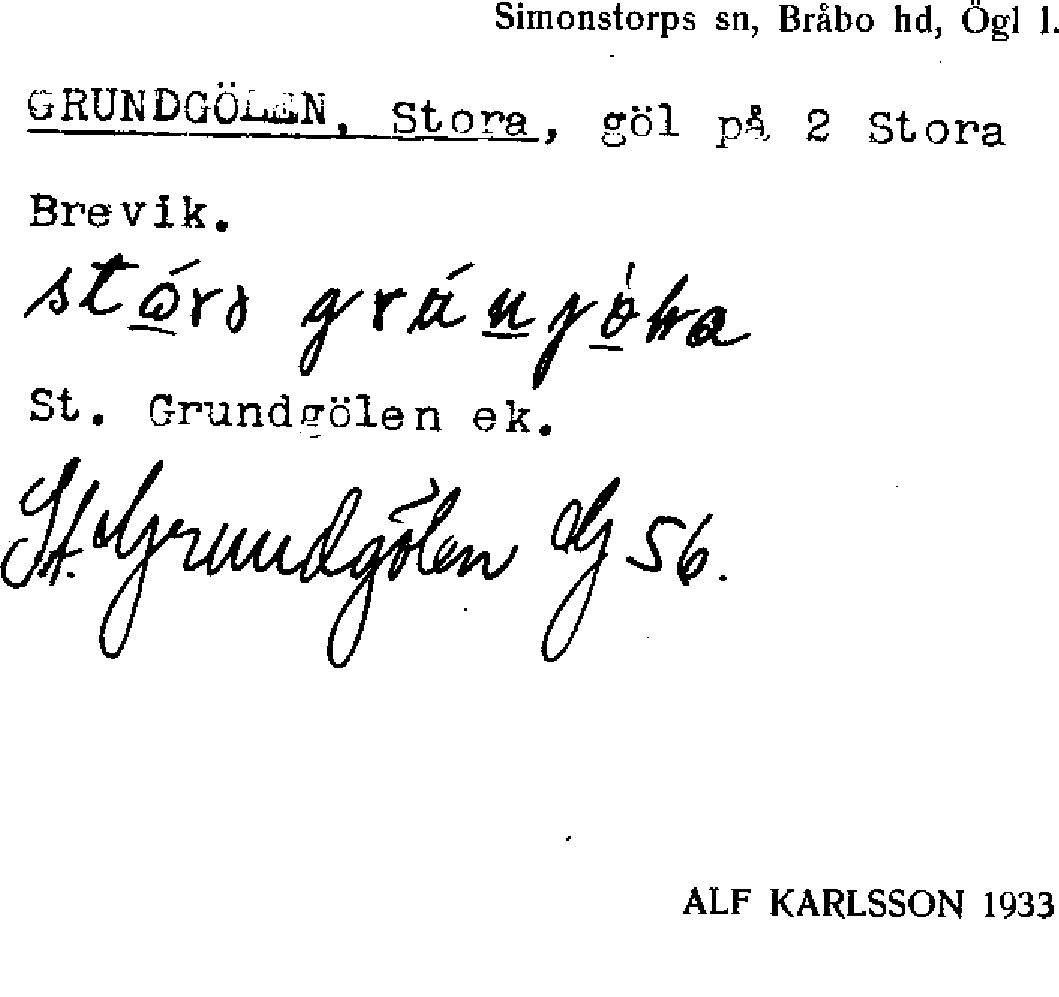 Simonstorps sn, Bråbo hd, Ögl l.
GRUNDGÖLEN, Stora, göl på 2 Stora
Brevik.
St. Grundgölen ek.
St. Grundgölen dG 56.
ALF KARLSSON 1933